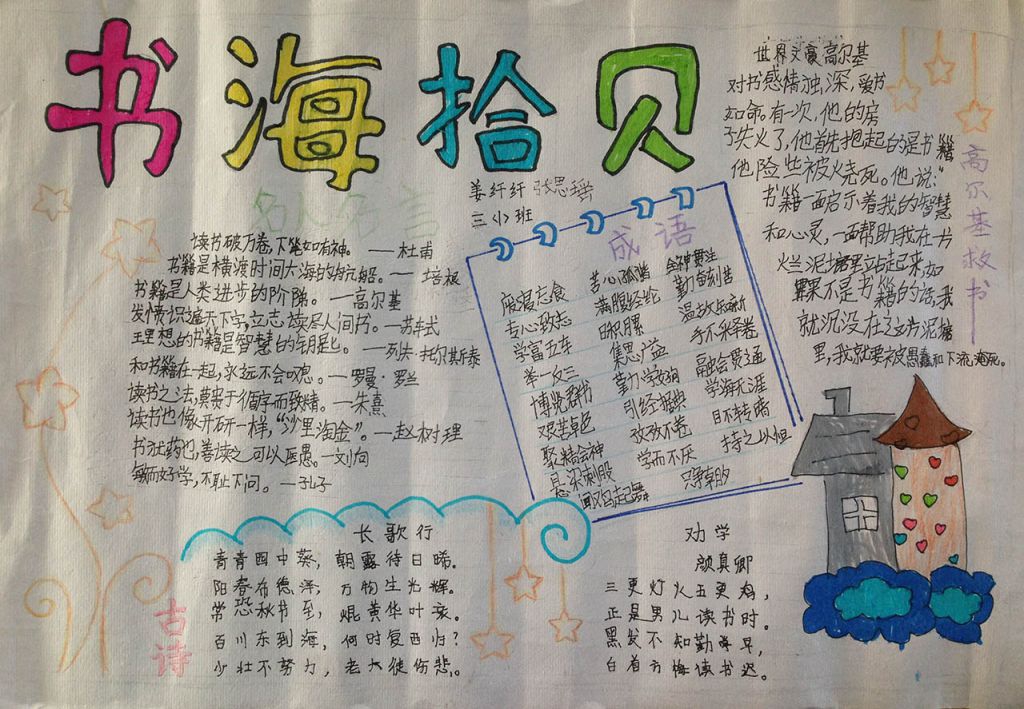 书海拾贝
姜纤纤 张思瑶
三(1)班
名人名言
读书破万卷,下笔如有神。——杜甫
书籍是横渡时间大海的航船。——培根
书籍是人类进步的阶隙。——高尔基
发愤识遍天下字,立志读尽人间书。——苏轼
理想的书籍是智慧的钥匙。——列夫·托尔斯泰
和书籍在一起,永远不会叹息。——罗曼·罗兰
读书之法,莫贵于循序而致精。——朱熹
读书也像开矿一样,“沙里淘金”。——赵树理
书犹药也,善读之可以医愚。——刘向
敏而好学,不耻下问。——孔子
成语
废寝忘食 苦心孤诣 全神贯注
专心致志 满腹经纶 勤奋刻苦
学富五车 日积月累 温故知新
举一反三 集思广益 手不释卷
博览群书 勤力学 融会贯通
艰苦卓 引经据典 学海无涯
聚精会神 孜孜不卷 目不转睛
悬梁刺股 学而不厌 持之以恒
闻鸡起舞
世界文豪高尔基
对书感情独深,爱书
如命。有一次,他的房
子失火了,他首先抱起的是书籍
他险些被火烧死。他说:“
书籍一面启示着我的智慧
和心灵,一面帮助我在一片
烂泥塘里站起来,如
果不是书籍的话,我
就沉没在这片泥塘
里,我就要被愚蠢和下流淹死。
高尔基救书
古诗
长歌行
青青园中葵,朝露待日晞。
阳春布德泽,万物生光辉。
常恐秋节至,焜黄华叶衰。
百川东到海,何时复西归?
少壮不努力,老大徒伤悲。
劝学
颜真卿
三更灯火五更鸡,
正是男儿读书时。
黑发不知勤学早,
白首方悔读书迟。